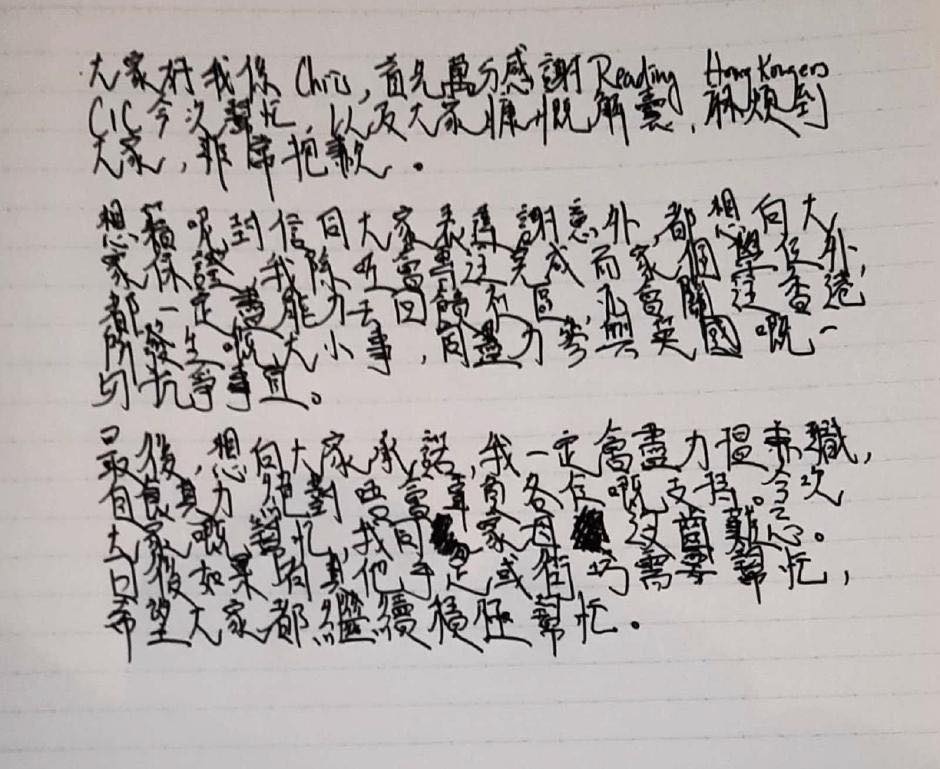 大家好我係 Chris, 首先萬分感謝 Reading Hongkongers
CIC 今次幫忙, 以及大家慷慨解囊, 麻煩到
大家, 非常抱歉。
想藉呢封信同大家表達謝意外, 都想向大
家保證, 我除咗會專注完成而家個學位外,
都一定盡能力去回饋社區, 亦會關注香港
所發生嘅大小事, 同盡力參與英國嘅一
切抗爭事宜。
最後, 想向大家承諾, 我一定會盡力搵兼職,
自食其力, 絕對唔會辜負各位嘅支持。今次
大家嘅幫忙, 我同家母沒齒難忘。
日後如果有其他手足或街坊需要幫忙,
希望大家都繼續積極幫忙。